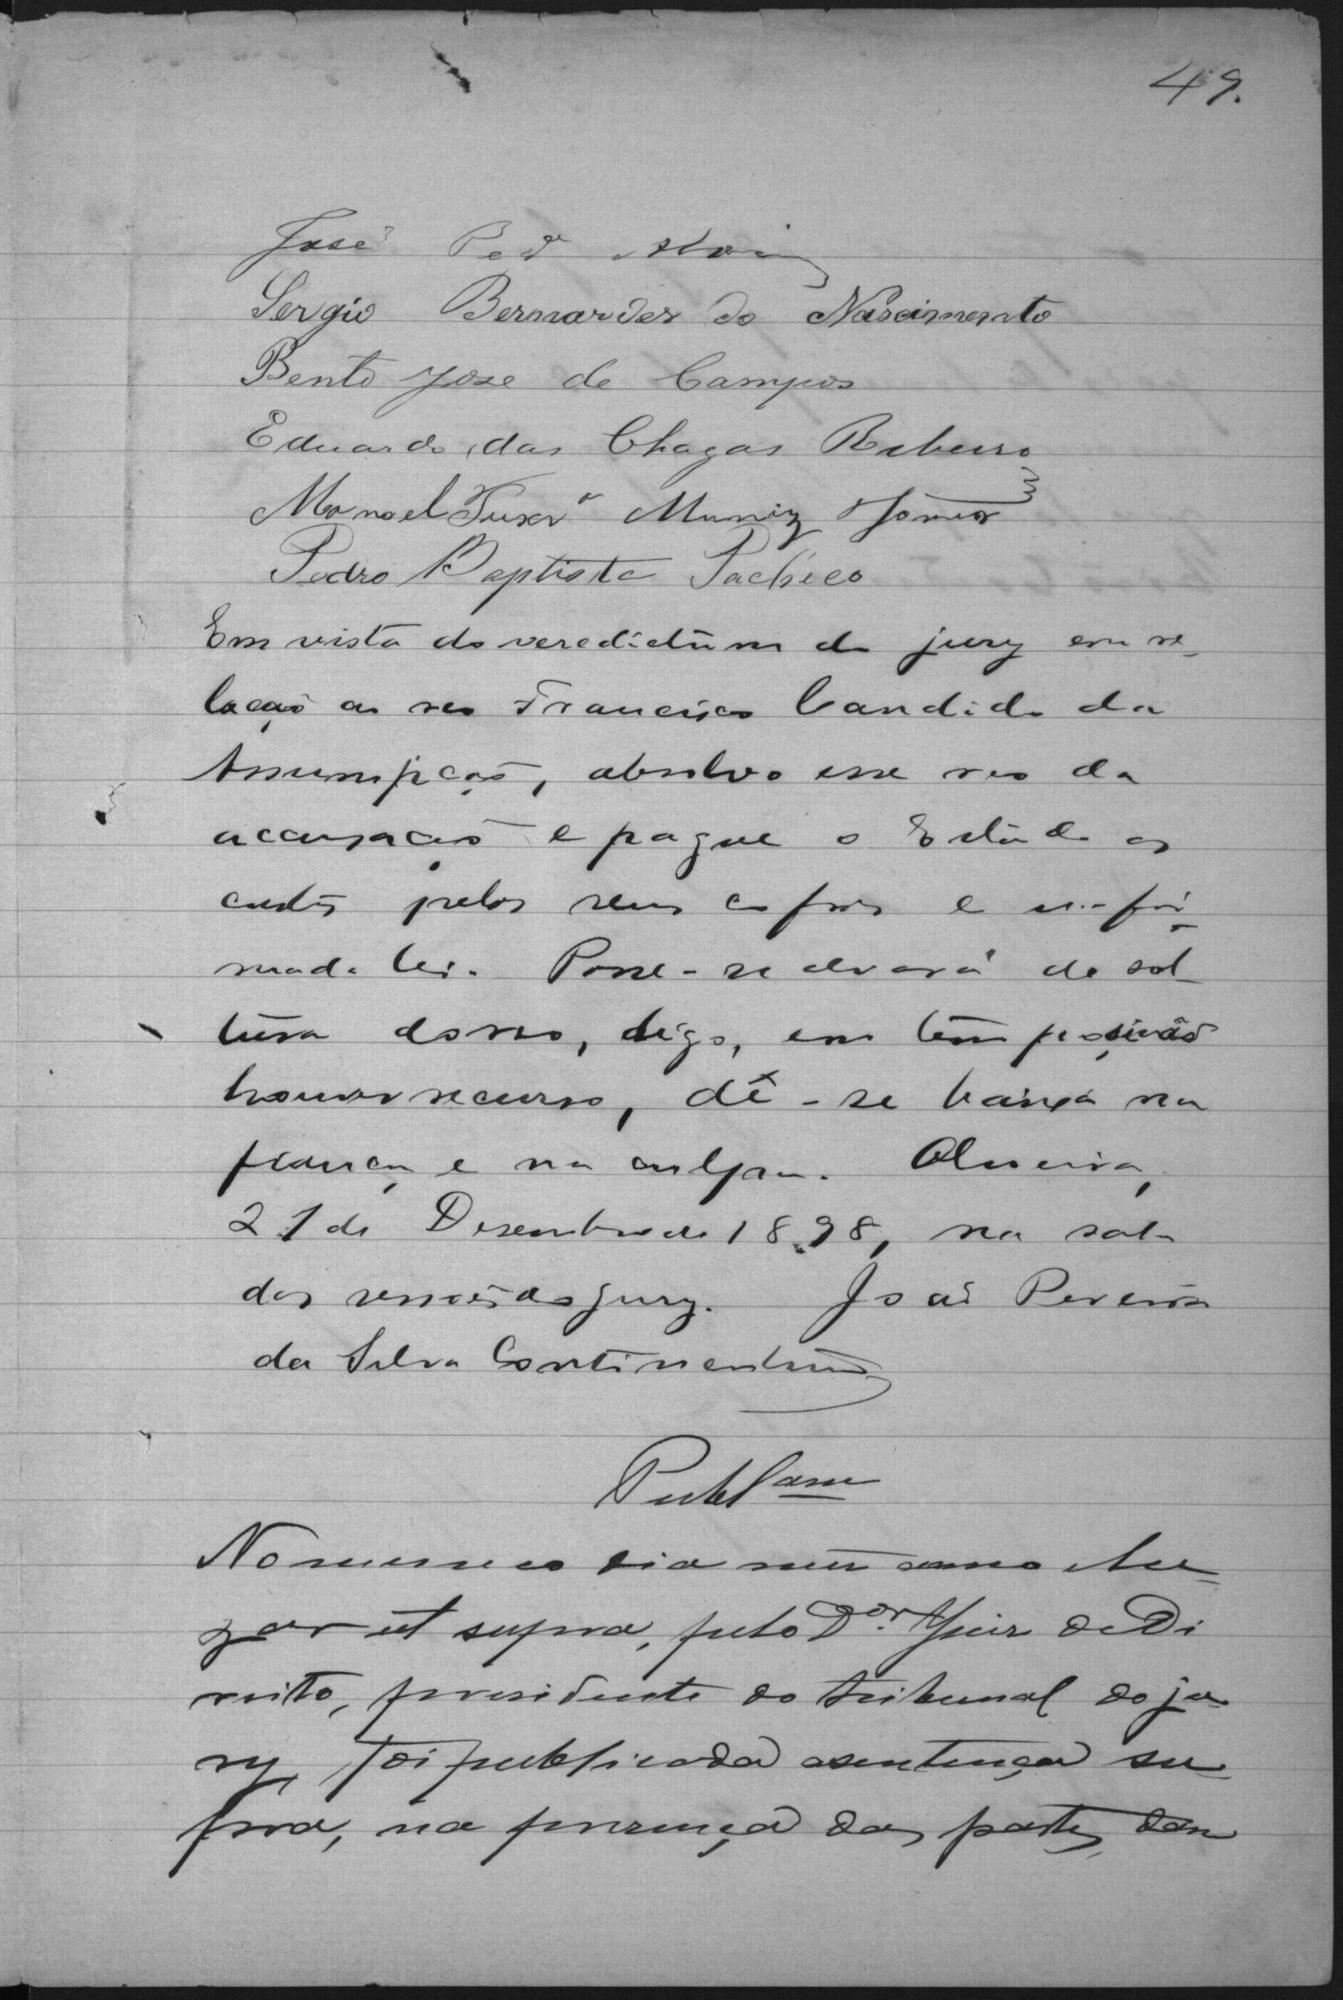 49.
José Ped
Sergio Bernardes do Nascimento
Bento Jose de Campos
Eduardo das Chagas Ribeiro
Manoel Muniz
Pedro Baptista Pacheco
Em vista do veredictum do jury em re-
lação ao reo Francisco Candido da
Assumpção, absolvo esse reo da
accusação e pague o Estado as
custas pelos seus cofres e na fór-
ma da lei. Passe-se alvará de sol
tura do reo, digo, em tempo, si não
houver recurso, dê-se baixa na
fiança e na culpa. Oliveira,
21 de Desembro de 1898, na sala
das sessões do jury. João Pereira
da Silva Continentino
Publ.am
No mesmo dia mez anno e lu-
gar ut supra, pelo Dor. Juiz de Di
reito, presidente do tribunal do ju-
ry, foi publicada a sentença su-
pra, na presença das partes, dou